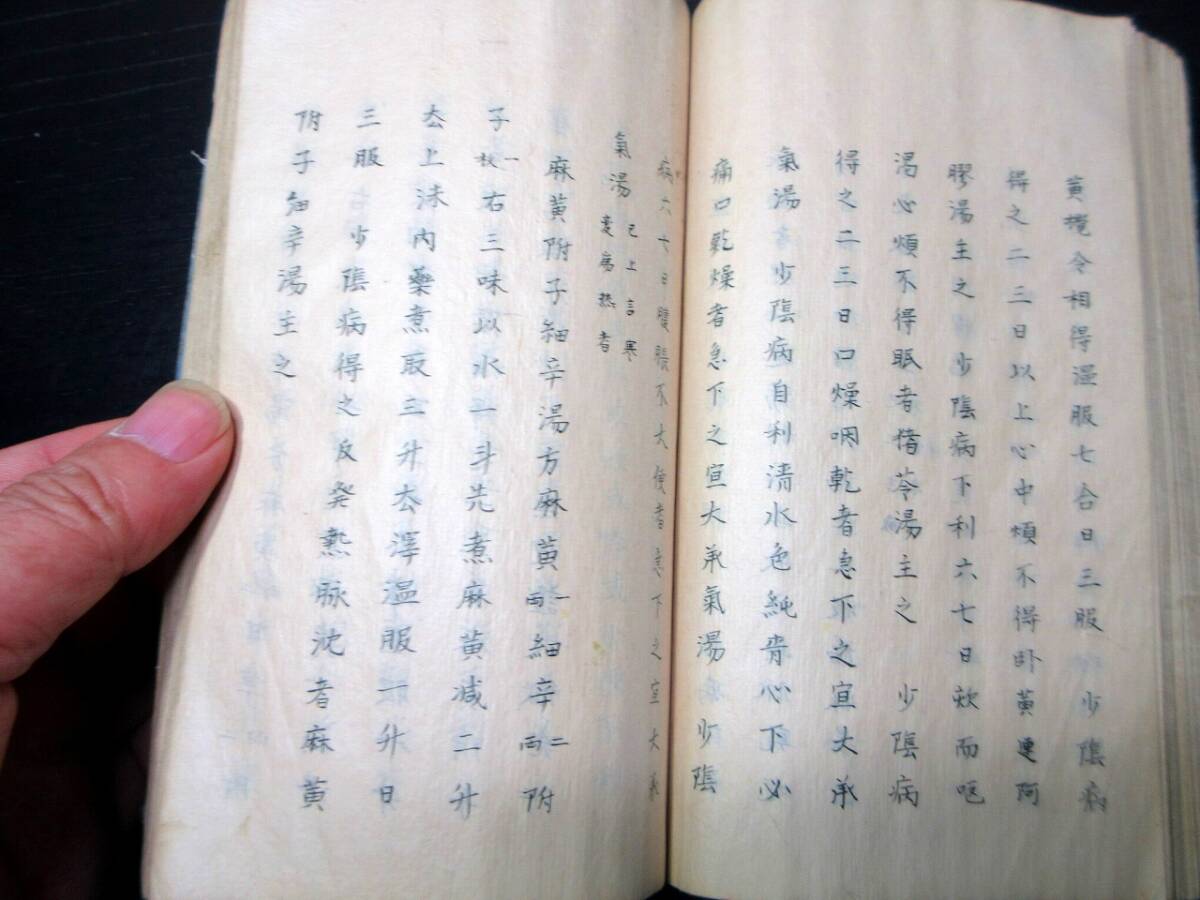 黄攪令相得温服七合日三服 少陰病
得之二三日以上心中煩不得卧黄連阿
膠湯主之 少陰病下利六七日欬而呕
渇心煩不得眠者猪苓湯主之 少陰病
得之二三日口燥咽乾者急下之宣大承
氣湯 少陰病自利清水色純青心下必
痛口乾燥者急下之宣大承氣湯 少陰
病六七日腹脹不大便者急下之宣大承
氣湯 已上言寒
変病热者
麻黄附子細辛湯方麻黄二兩細辛二兩附
子一枚右三味以水一斗先煮麻黄减二升
去上沫内藥煮取三升去滓温服一升日
三服 少陰病得之反発熱脉沈者麻黄
附子細辛湯主之